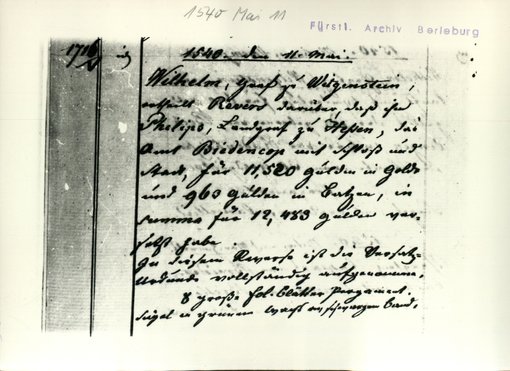 1540 Mai 11
Fürstl. Archiv Berleburg
1540. den 11. Mai.
Wilhelm, Graf zu Witgenstein,
ertheilt Revers darüber, daß ihm
Philipp, Landgraf zu Hessen, das
Amt Biedencop mit Schloß und
Stadt, für 11,520 Gulden in Golde
und 963 Gulden in Batzen, in
summa für 12,483 Gulden ver-
setzt habe.
In diesem Reverse ist die Versatz-
Urkunde vollständig aufgenommen.
8 große fol. Blätter Pergament.
Siegel in grünem Wachs an schwarzem Band.